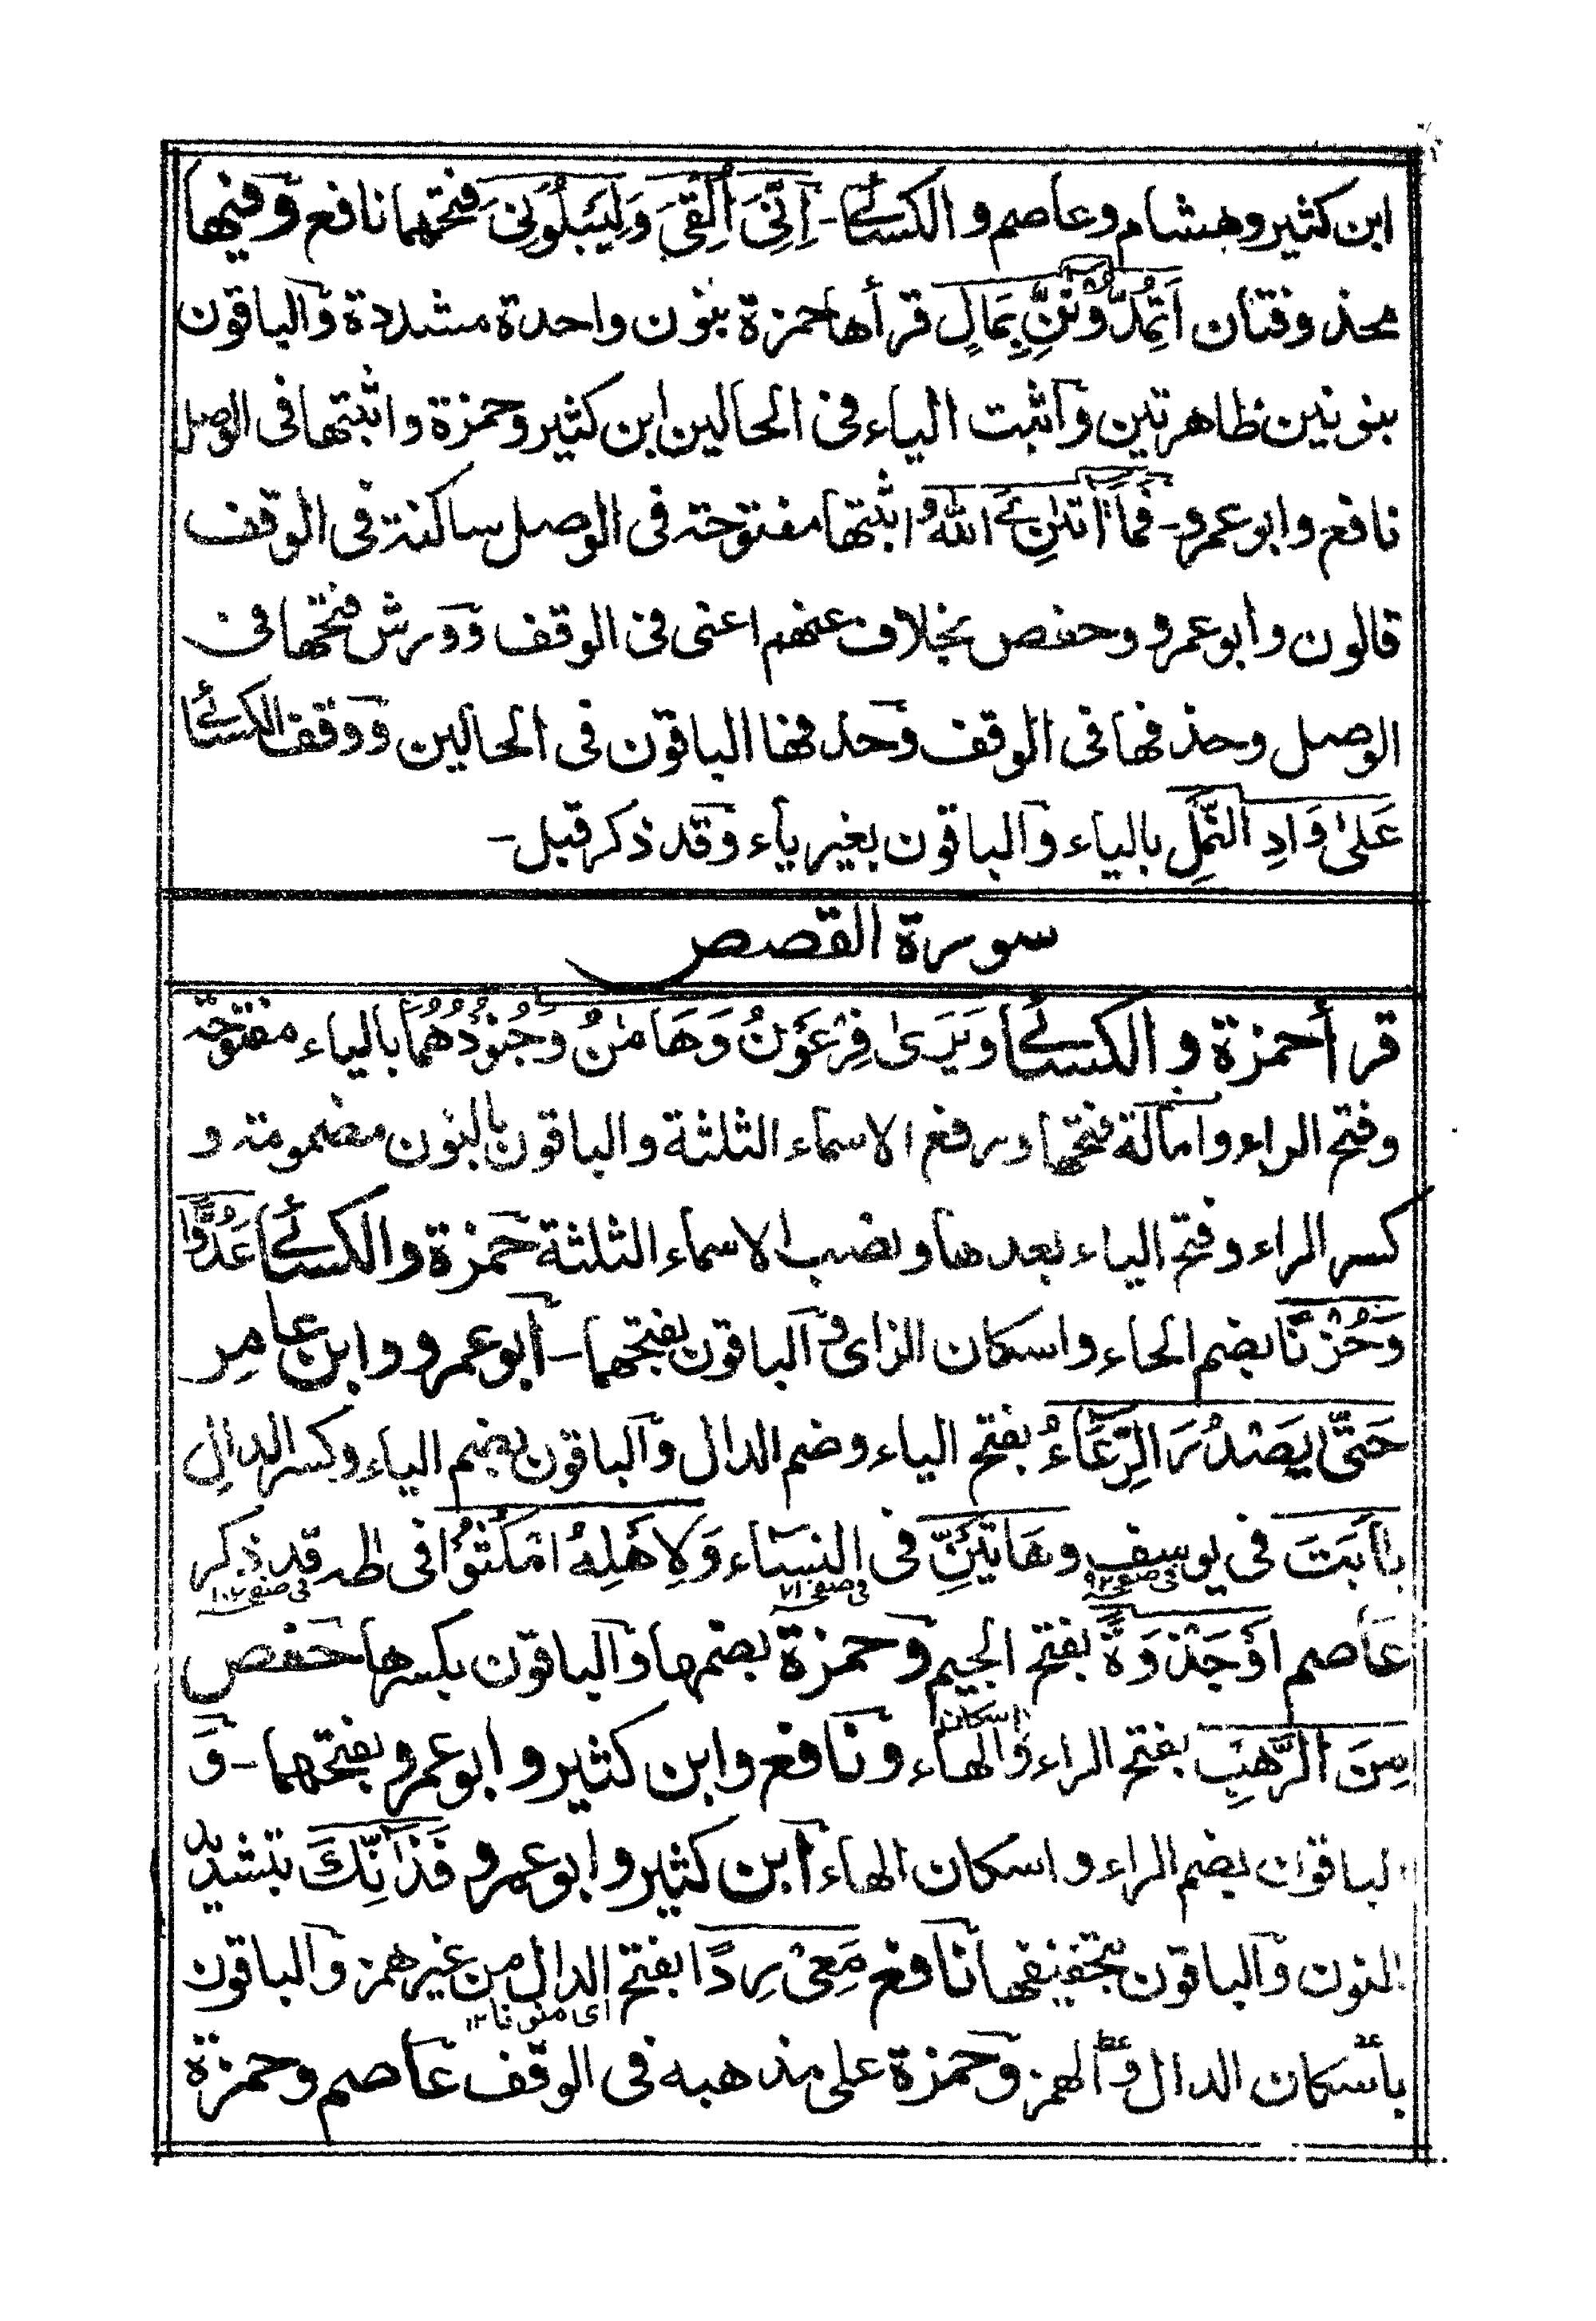 ابن كثير وهشام وعاصم و الكسائی - اِنِّیَ اُلْقِیَ وَلِیَبْلُوَنِیَ فتحهما نافع وفیها
محذوفتان اَتُمِدُّوْنَنِ بِمَالٍ قرأها حمزة بنون واحدة مشددة والباقون
بنونين ظاهرتين واثبت الياء فی الحالين ابن كثير وحمزة واثبتها فی الوصل
نافع وابو عمرو - فَمَآ اٰتٰنِ یَ اللهُ و اثبتها مفتوحة فی الوصل ساكنة فی الوقف
قالون وابو عمرو وحفص بخلاف عنهم اعنی فی الوقف وورش فتحها فی
الوصل وحذفها فی الوقف وحذفها الباقون فی الحالين ووقف الكسائی
عَلیٰ وَادِ النَّمْلِ بالياء والباقون بغير ياء وقد ذكر قبل -
سورة القصص
قرأ حمزة و الكسائی وَيَرَیٰ فِرْعَوْنُ وَهَامٰنُ وَجُنُوْدُهُمَا بالياء مفتوحة
وفتح الراء وامالة فتحها ورفع الاسماء الثلثة والباقون بالنون مضمومة و
كسر الراء وفتح الياء بعدها ونصب الاسماء الثلثة حمزة والكسائی عَدُوًّا
وَحُزْنًا بضم الحاء واسكان الزای و الباقون بفتحهما - ابو عمرو وابن عامر
حَتّٰی يَصْدُرَ الرِّعَآءُ بفتح الياء وضم الدال والباقون بضم الياء وكسر الدال
يٰاَبَتَ فی يوسف وهَاتَيْنِّ فی النساء وَلِاَهْلِهُ امْكُثُوْا فی طه قد ذكر
فی صفحہ ٩٢ فی صفحہ ٧١ فی صفحہ ١٠٢
عاصم اَوْجَذْوَةٍ بفتح الجيم وحمزة بضمها والباقون بكسرها حفص
مِنَ الرَّهْبِ بفتح الراء واسكان الهاء ونافع وابن كثير وابو عمرو بفتحهما - و
الباقون بضم الراء واسكان الهاء ابن كثير وابو عمرو فَذَانِّكَ بتشديد
النون والباقون بتخفيفها نافع مَعِیْ رِدًا بفتح الدال من غير همز والباقون
ای منونا ١٢
باسكان الدال والهمز وحمزة علی مذهبه فی الوقف عاصم وحمزة